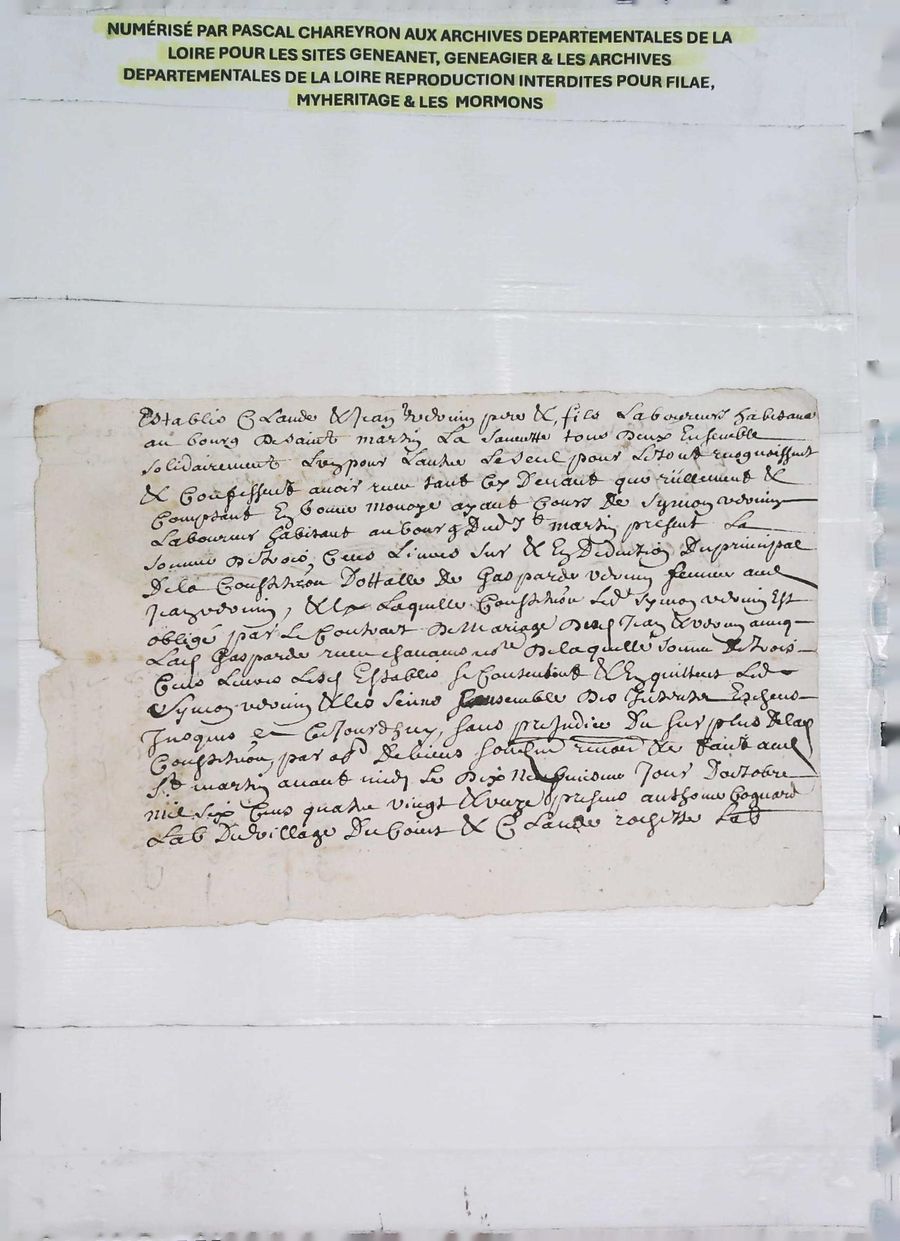 NUMÉRISÉ PAR PASCAL CHAREYRON AUX ARCHIVES DEPARTEMENTALES DE LA
LOIRE POUR LES SITES GENEANET, GENEAGIER & LES ARCHIVES
DEPARTEMENTALES DE LA LOIRE REPRODUCTION INTERDITES POUR FILAE,
MYHERITAGE & LES MORMONS
Establis Claude & Jean verdun pere & fils Laboureurs habitans
au bourg de saint martin La Sauvette tous deux Ensemble
solidairement L'un pour L'autre Le seul pour Le tout recognoissent
& Confessent avoir receu tant Cy Devant que réellement &
Comptant En bonne monoye ayant Cours De Symon verdun
Laboureur habitant au bourg Dud St martin présent La
somme De trois Cens Livres sur & En Deduction Du principal
De la Constitution Dottalle De Gasparde verdun femme aud
Jean verdun, & a Laquelle Constitution Led Symon verdun Est
obligé par Le Contract De Mariage Desd Jean & verdun avecq
Lad Gasparde receu notre De laquelle somme De trois
Cens Livres Lesd Establis se Contentent & En quittent Led
Symon verdun & les siens Ensemble Des Interests Escheus
Jusques a Ce Jourdhuy, sans prejudice Du surplus De lad
Constitution, par De biens & faict aud
St martin avant midy Le Dix Jour D'octobre
mil six Cens quatre vingt & unze presens anthoine Coquard
Lab Du village Du & Claude rochette Lab